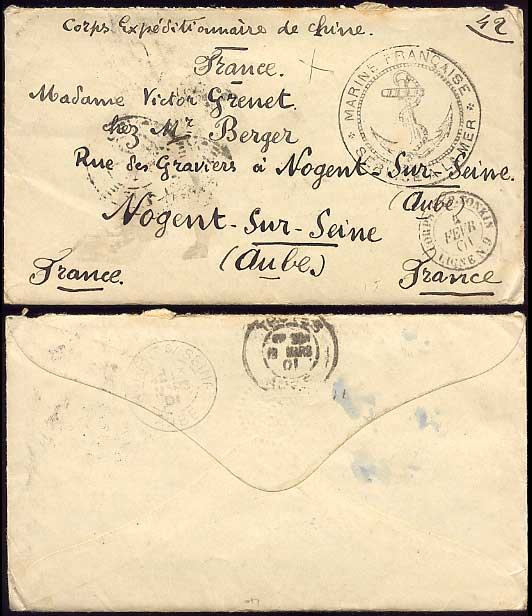 Corps Expéditionnaire de chine.
42
France.
Madame Victor Grenet.
chez Mr Berger
Rue des Graviers à Nogent-Sur-Seine.
(Aube)
Nogent-Sur-Seine
(Aube)
France.
France
* MARINE FRANÇAISE *
MER
CORPS TONKIN
4
FEVR
01
LIGNE N. 9
MARS
01